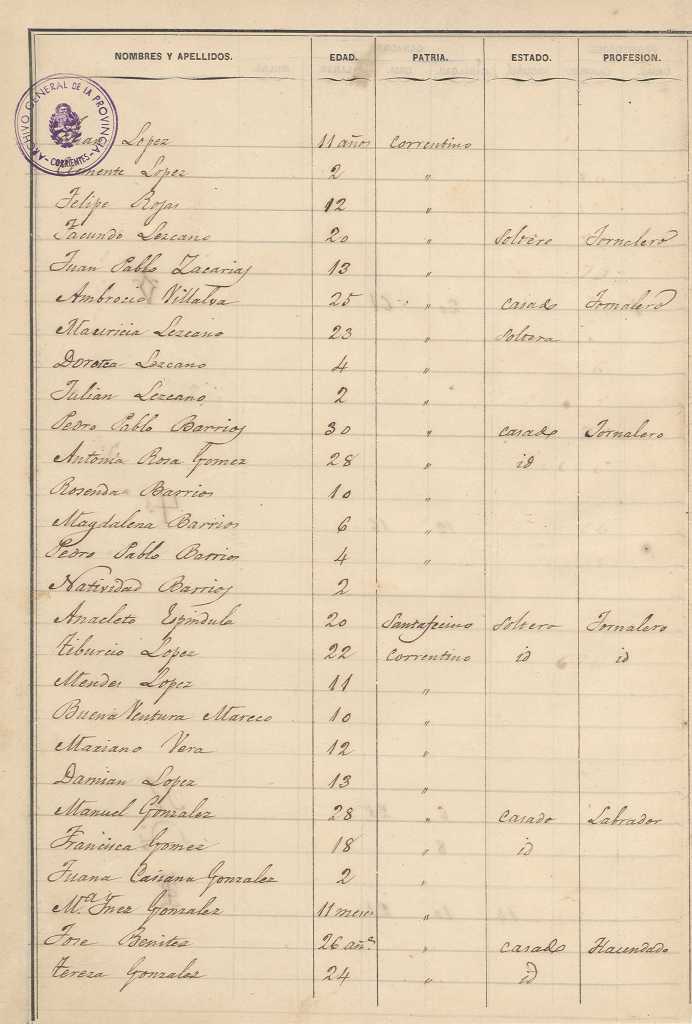 NOMBRES Y APELLIDOS. EDAD. PATRIA. ESTADO. PROFESION.
ARCHIVO GENERAL DE LA PROVINCIA - CORRIENTES -
Lopez 11 años Correntino
Clemente Lopez 2 〃
Felipe Rojas 12 〃
Facundo Lezcano 20 〃 Soltero Jornalero
Juan Pablo Zacarias 13 〃
Ambrocio Villalva 25 〃 Casado Jornalero
Mauricia Lezcano 23 〃 Soltera
Dorotea Lezcano 4 〃
Julian Lezcano 2 〃
Pedro Pablo Barrios 30 〃 Casado Jornalero
Antonia Rosa Gomez 28 〃 id
Rosenda Barrios 10 〃
Magdalena Barrios 6 〃
Pedro Pablo Barrios 4 〃
Natividad Barrios 2
Anacleto Espindula 20 Santafecino Soltero Jornalero
Tiburcio Lopez 22 Correntino id id
Mendes Lopez 11 〃
Buena Ventura Mareco 10 〃
Mariano Vera 12 〃
Damian Lopez 13 〃
Manuel Gonzalez 28 〃 Casado Labrador
Francisca Gomez 18 〃 id
Juana Gonzalez 2 〃
Mª Ynez Gonzalez 11 meses 〃
Jose Benitez 26 añs 〃 Casado Hacendado
Tereza Gonzalez 24 〃 id